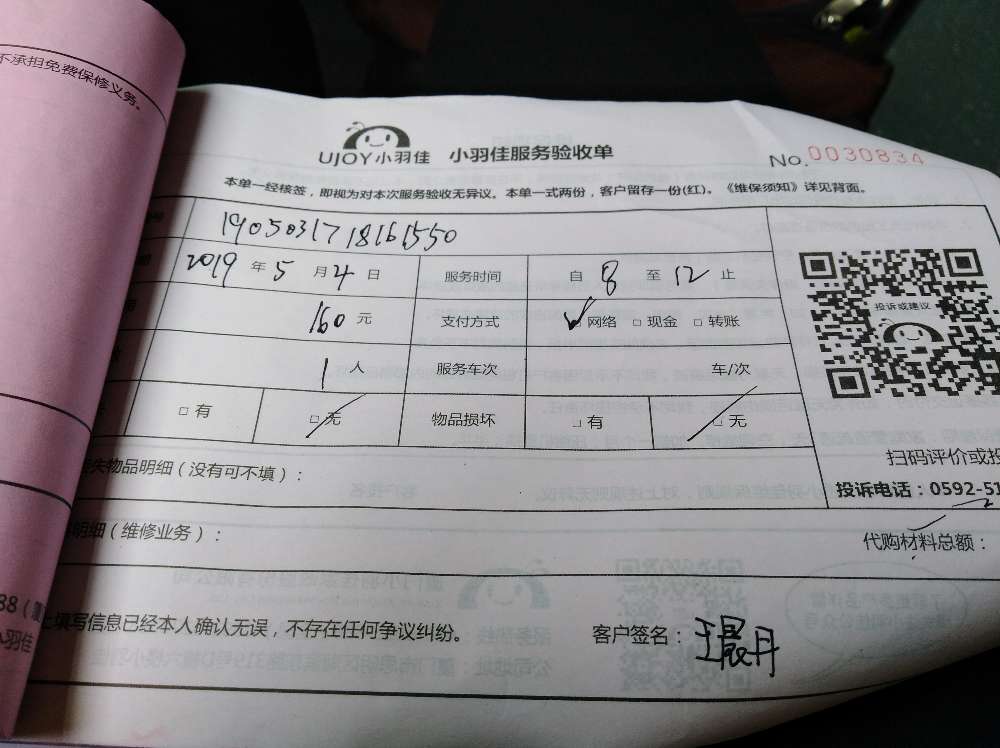 不承担免费保修义务。
UJOY小羽佳 小羽佳服务验收单
No. 0030834
本单一经核签，即视为对本次服务验收无异议。本单一式两份，客户留存一份(红)。《维保须知》详见背面。
19050317 18161550
2019 年 5 月 4 日 服务时间 自 8 至 12 止
160 元 支付方式 ☑网络 □现金 □转账
投诉或建议
1 人 服务车次 车/次
□有 □无 物品损坏 □有 □无
扫码评价或投
失物品明细（没有可不填）：
投诉电话：0592-51
明细（维修业务）：
代购材料总额：
填写信息已经本人确认无误，不存在任何争议纠纷。
客户签名：王晨丹